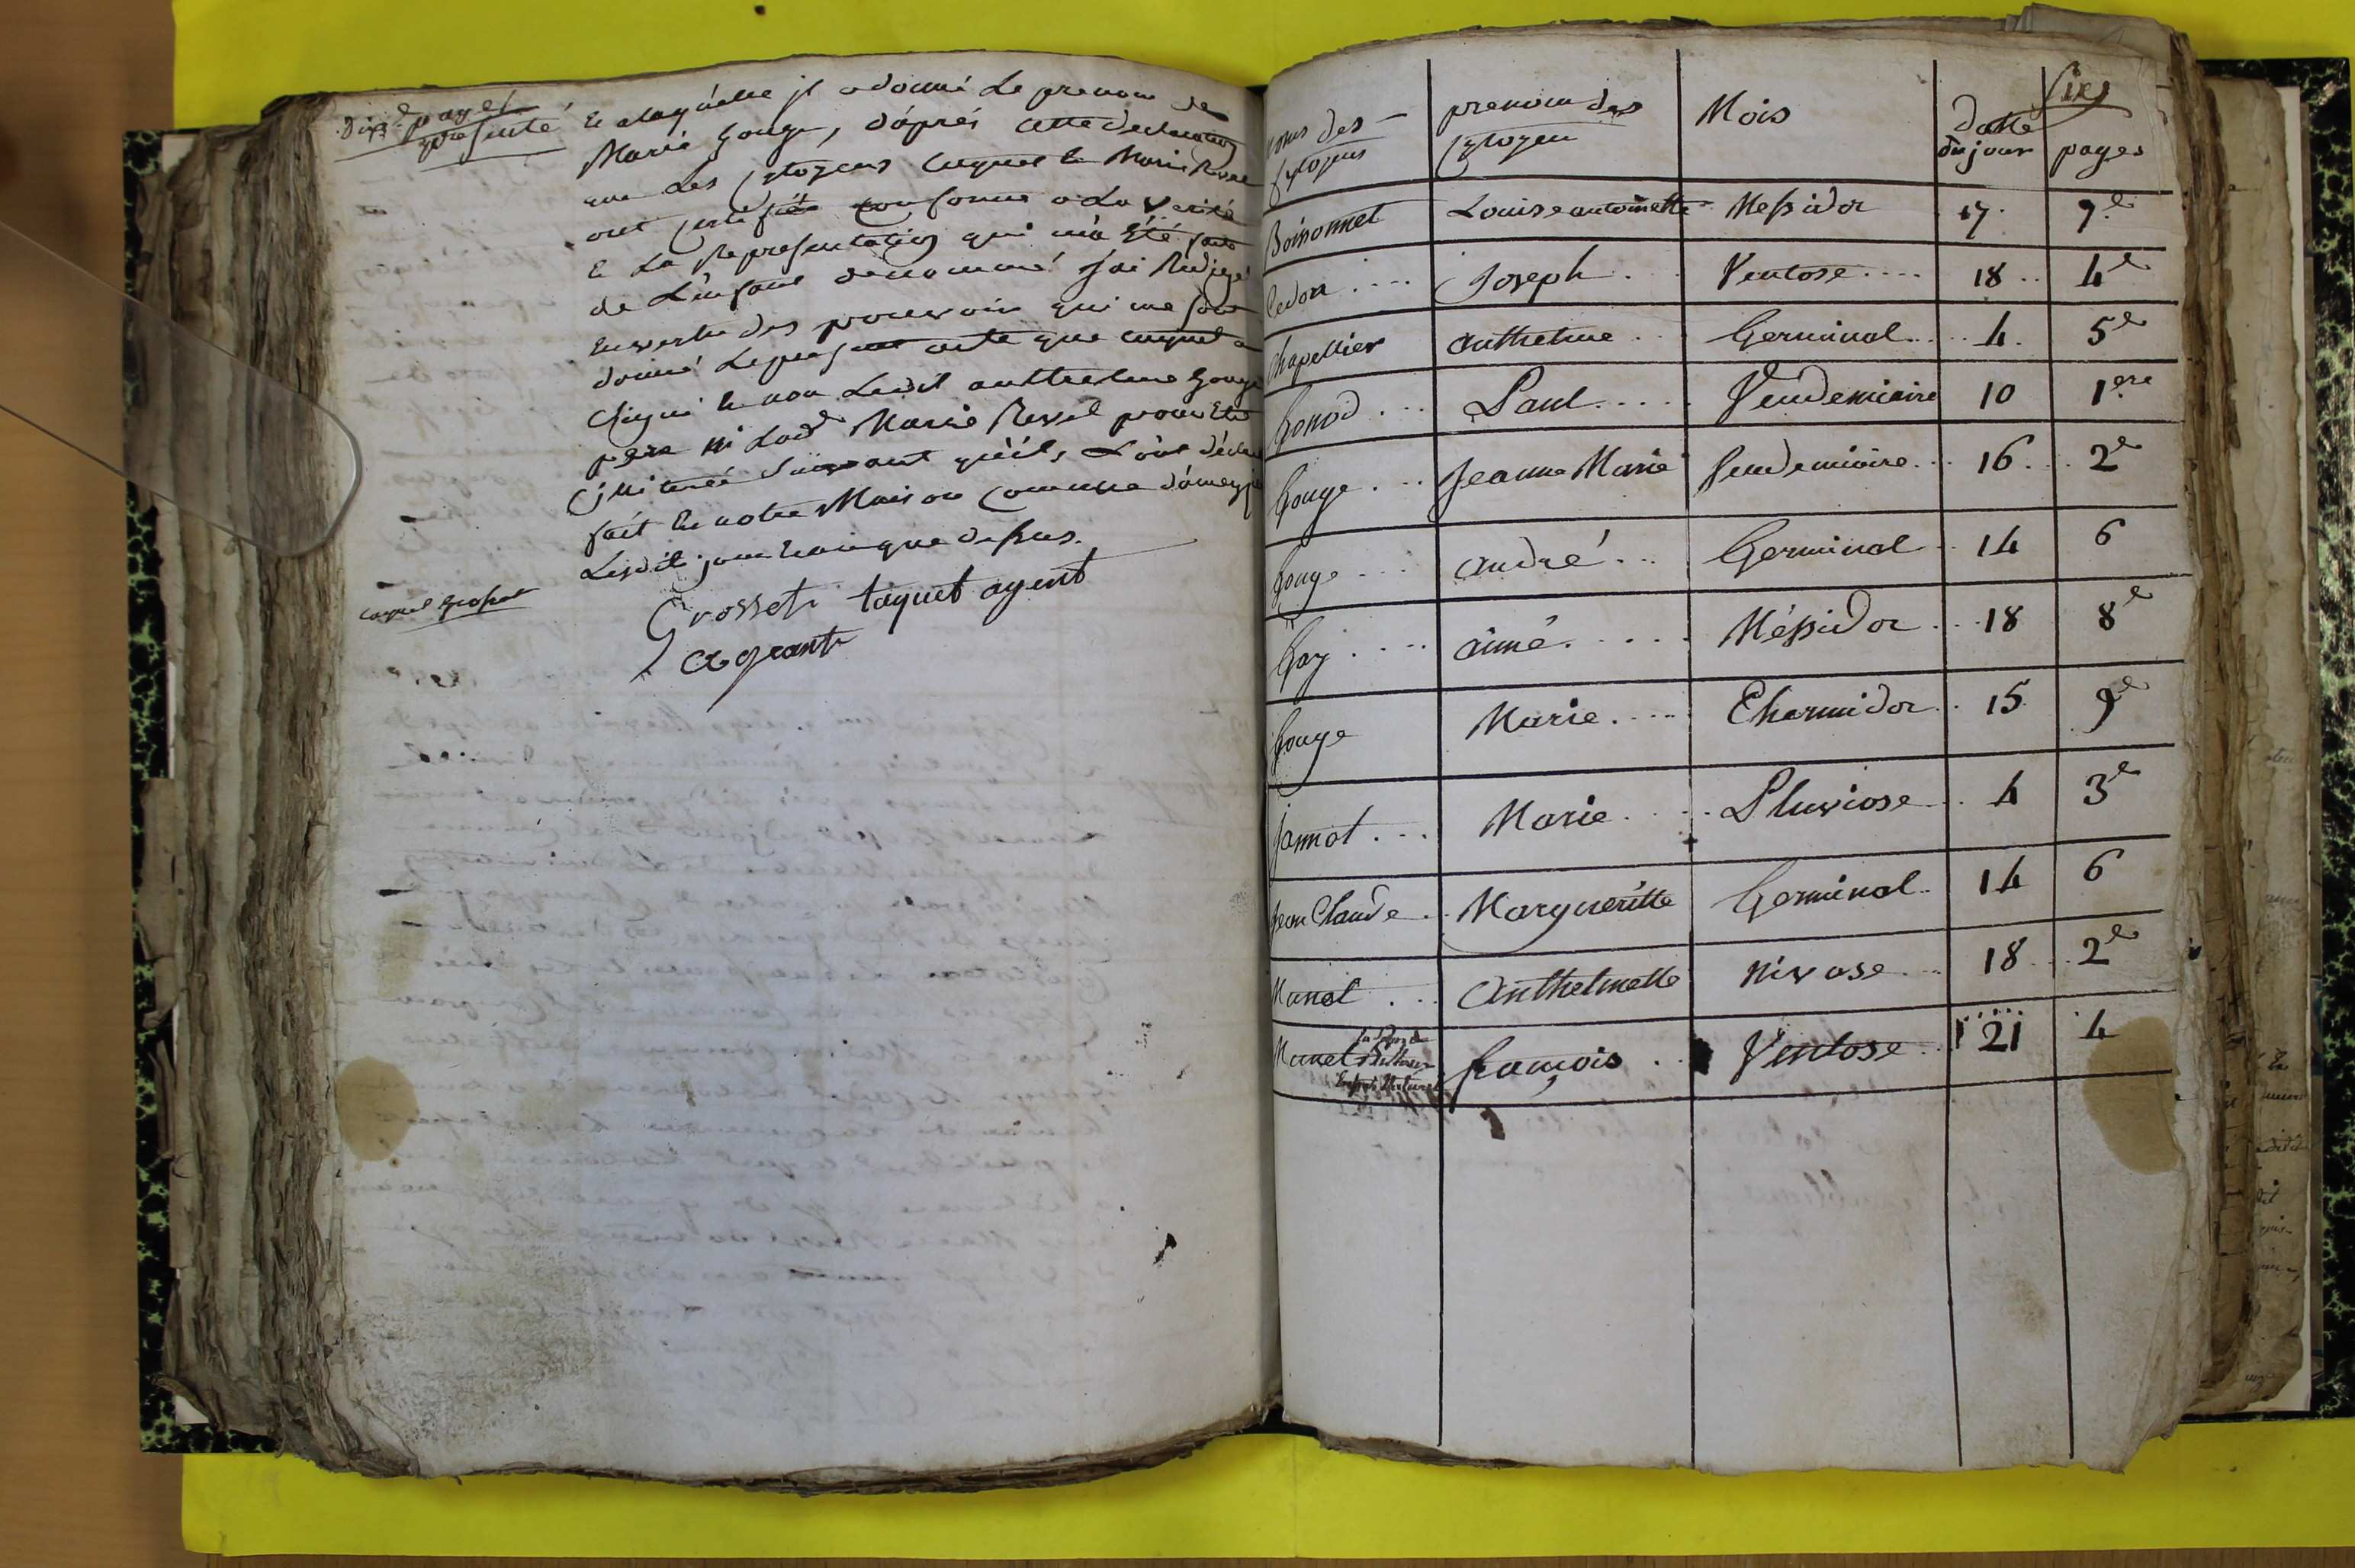 Dixe pages
presenté
Et a laquelle jl a donné Le prenom de
Marie Gouge, d'aprés cette declaration
que Les Cytoyens taquet et Marie Revel
ont certifiée conforme a La verité
et La Representation qui m'a Été faite
de L'enfant denommé jai Rediger
En vertu des pouvoirs qui me sont
donné Le present acte que taquet a
signé et non Ledit anthelme Gouge
pere ni Lad. Marie Revel pour Etre
jllitteré suivant qu'ils L'ont déclaré
fait en notre Maison Commune d'ameyzieu
Lesdits jour et an que dessus.
Grosset taquet agent
agrant
taquet Grosset
Six
noms des Cytoyens | prenom des Cytoyen | Mois | Datte du jour | pages
Boissonnet | Louise antoinette | Messidor | 17 | 7.e
Cedoz .... | Joseph . | Ventose .... | 18 .. | 4e
Chapellier | anthelme . | Germinal .. | 4. | 5e
Gonod ... | Paul ..... | Vendemiaire | 10 | 1ere
Gouge ... | Jeanne Marie | Vendemiaire .. | 16 .. | 2e
Gouge ... | andré ... | Germinal . | 14 | 6
Goy .... | aimé ..... | Méssidor . | 18 | 8e
Gouge | Marie .... | Thermidor . | 15 | 9e
Jannot ... | Marie .... | Pluviose . | 4 | 3e
Jean Claude . | Margueritte | Germinal .. | 14 | 6
Manel ... | Anthelmette | Nivose ... | 18 .. | 2e
Manet | francois .. | Ventose .. | 21 | 4